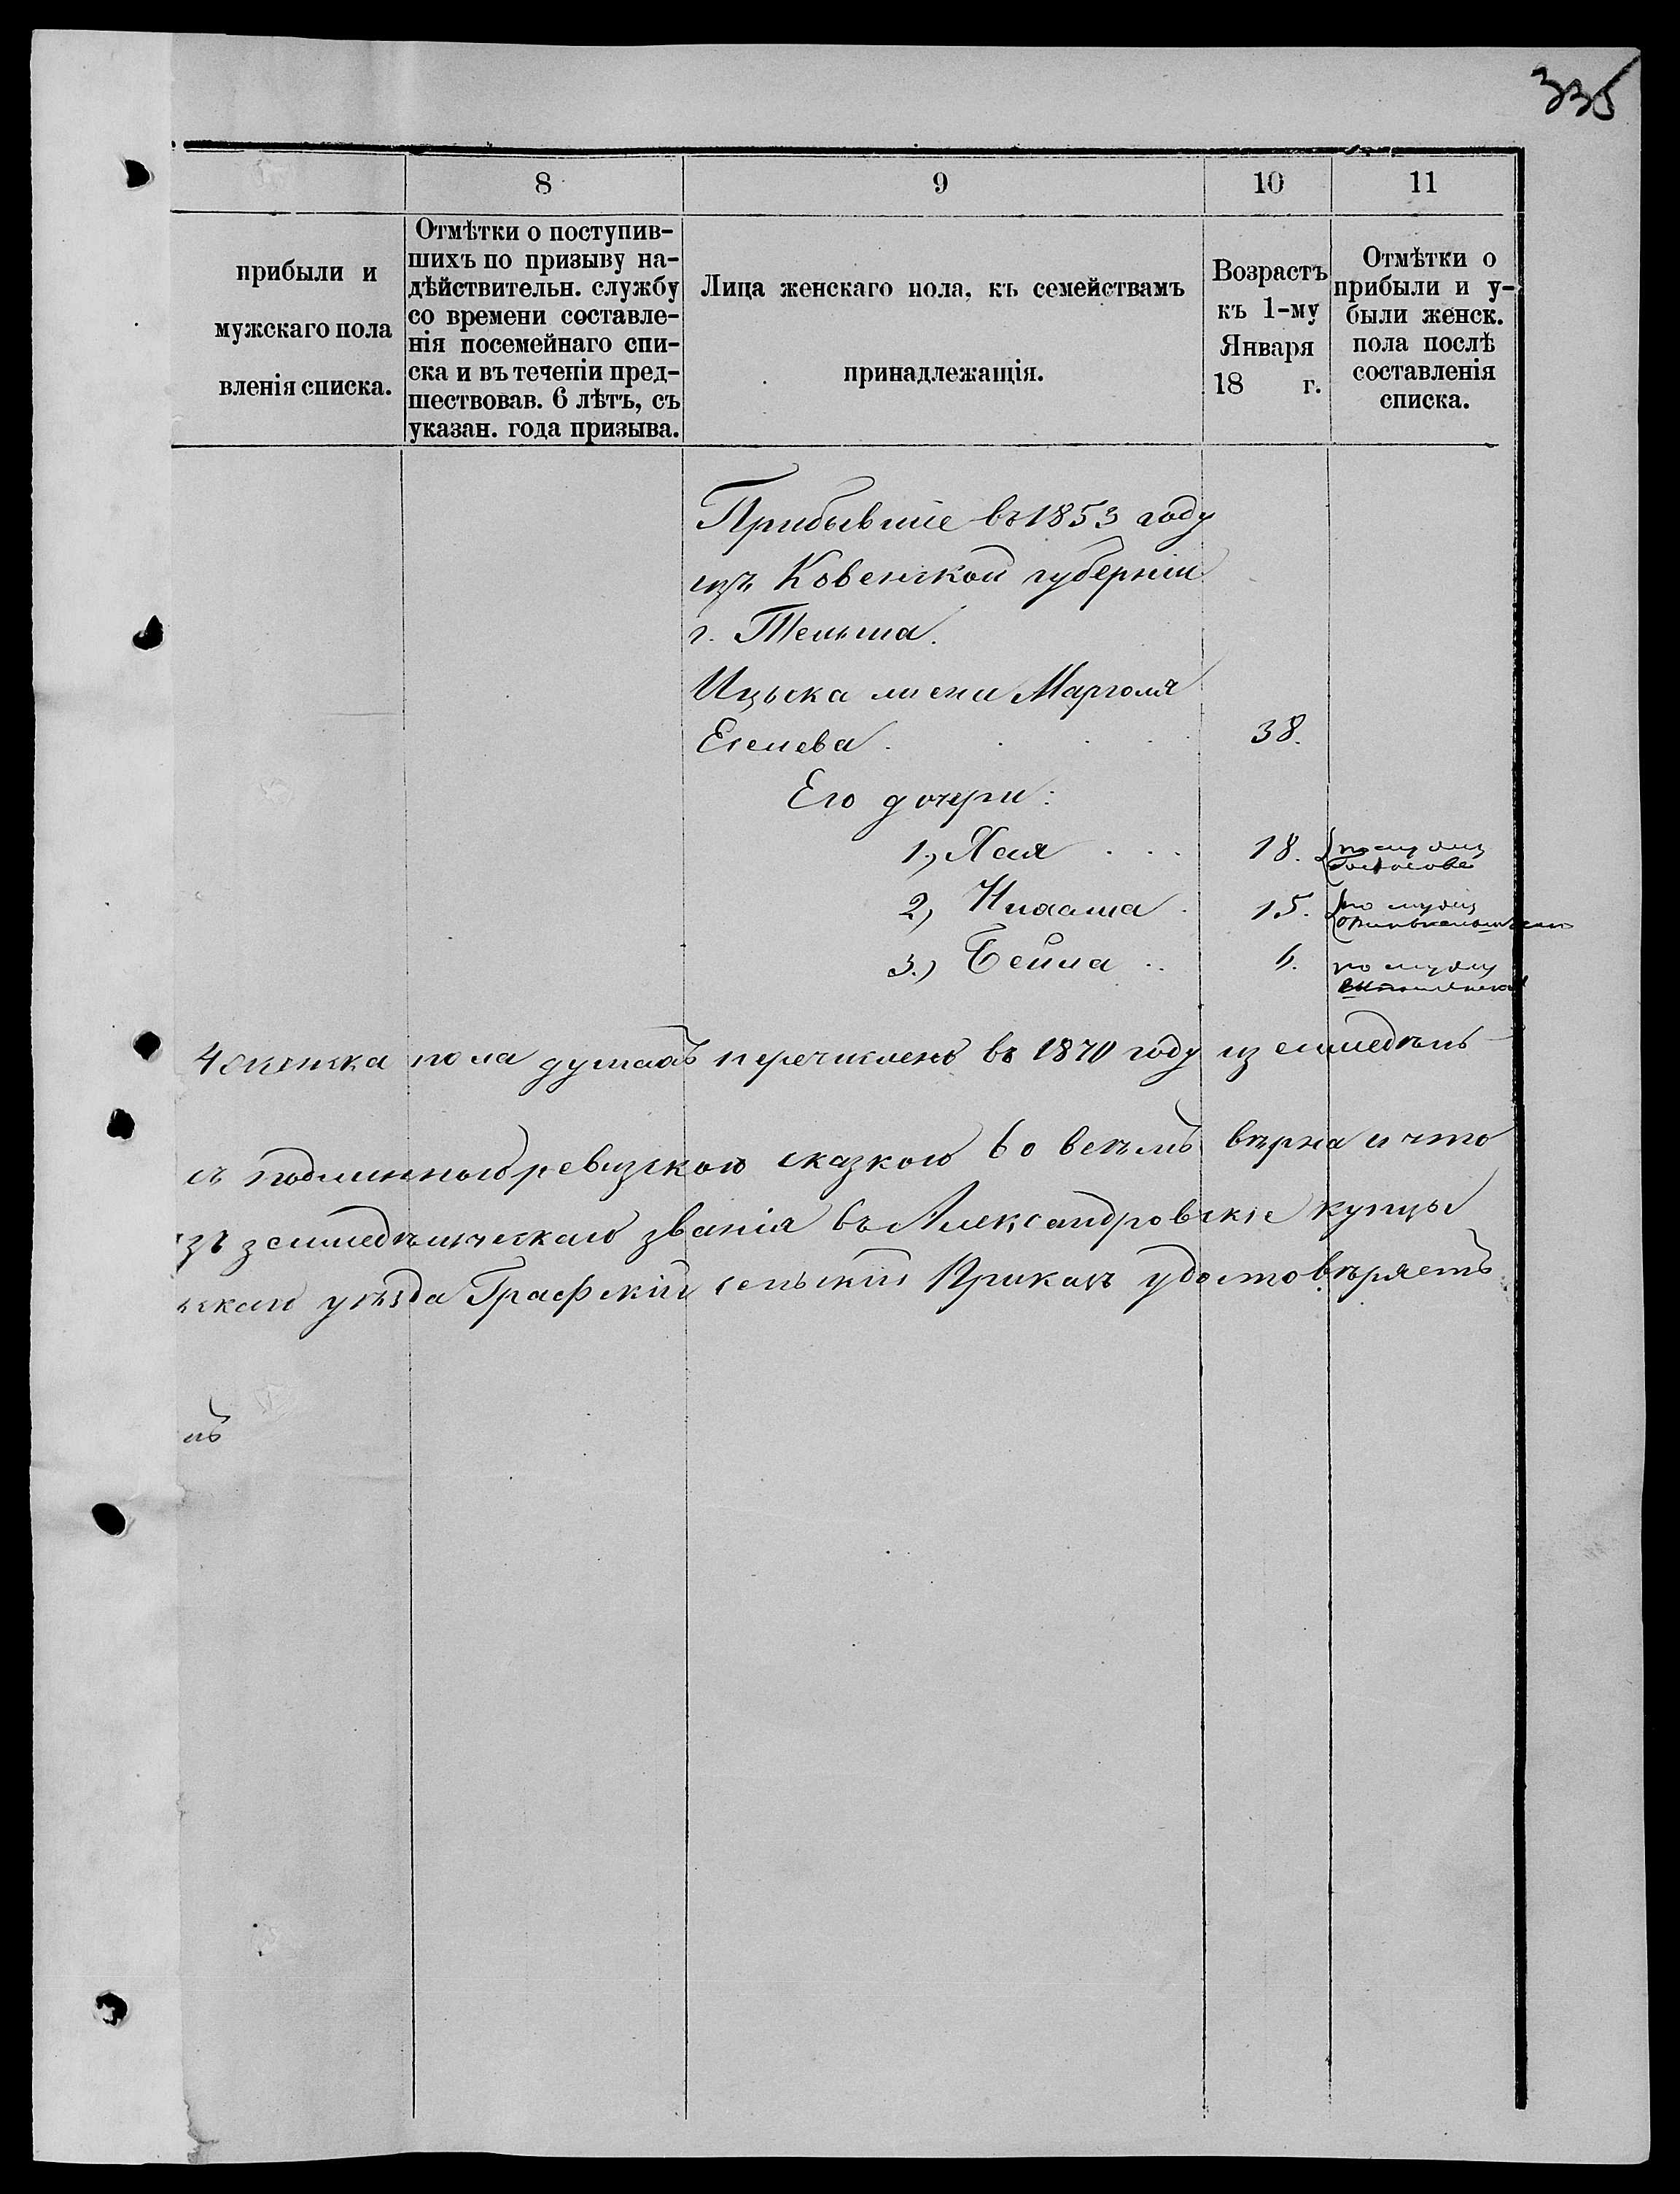 335
8 9 10 11
прибыли и
мужскаго пола
вленія списка.
Отмѣтки о поступив-
шихъ по призыву на-
дѣйствительн. службу
со времени составле-
нія посемейнаго спи-
ска и въ теченіи пред-
шествовав. 6 лѣтъ, съ
указан. года призыва.
Лица женскаго пола, къ семействамъ
принадлежащія.
Возрастъ
къ 1-му
Января
18 г.
Отмѣтки о
прибыли и у-
были женск.
пола послѣ
составленія
списка.
Прибывшіе въ 1853 году
изъ Ковенской губерніи
г. Тельша.
Ицыка жена Марголя
Евелева . . . . 38.
Его дочери:
1., Хая . . . 18. по мужу
2, 15. по мужу
3.) Бейла .. 6. по мужу
4 женска пола душахъ перечисленъ въ 1870 году из емледѣль
съ подлинною ревизскою сказкою во всемъ вѣрна и что
зъ земледѣльческаго званія въ Александровскіе купцы
скаго уѣзда Графскій сельскій Приказъ удостовѣряетъ
нъ